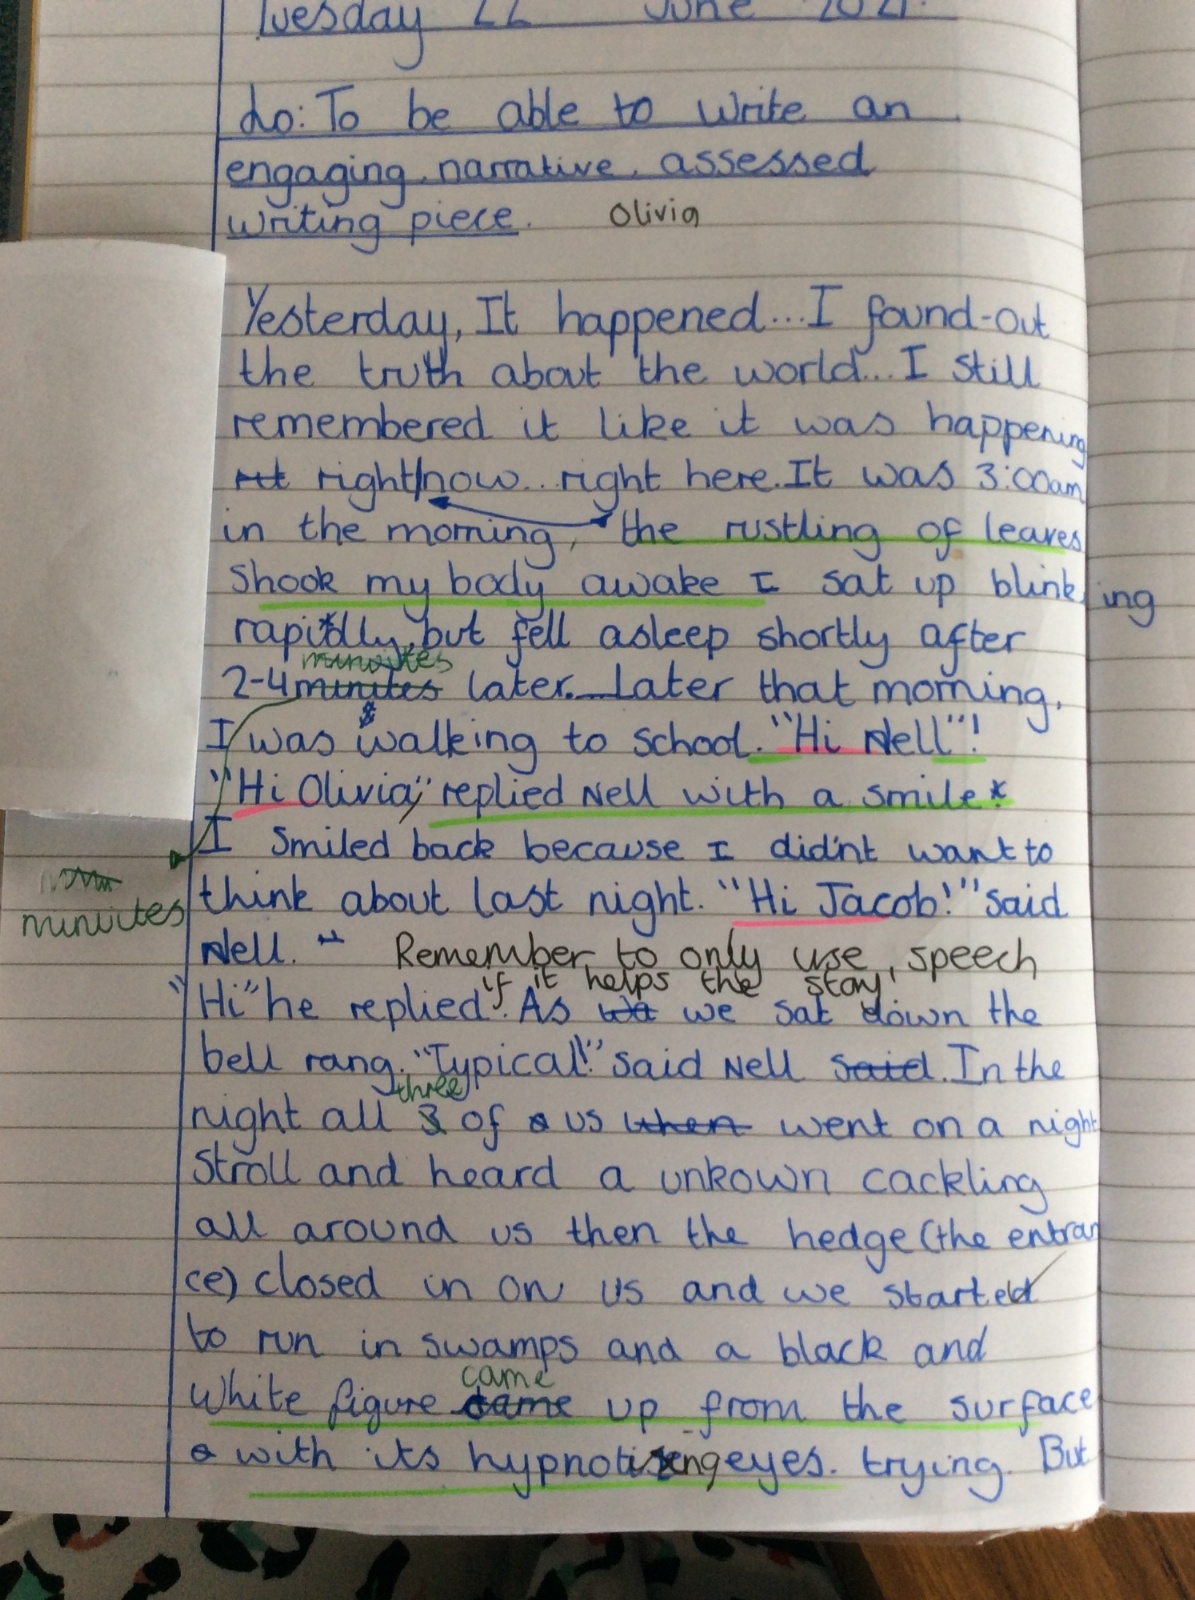 Tuesday 22 June 2021.
Lo: To be able to write an
engaging narrative, assessed
writing piece. Olivia
Yesterday, It happened...I found-out
the truth about the world...I still
remembered it like it was happening
right/now...right here. It was 3:00am
in the morning, the rustling of leaves
shook my body awake I sat up blinking
rapidly, but fell asleep shortly after
minuites
2-4 minutes later. Later that morning,
I was walking to school. "Hi Nell"!
"Hi Olivia," replied Nell with a smile*
I smiled back because I did'nt want to
think about last night. "Hi Jacob!" said
minuites
Nell. Remember to only use speech
if it helps the story.
"Hi" he replied. As we sat down the
bell rang. "Typical!" said Nell said. In the
three
night all 3 of us when went on a night
stroll and heard a unkown cackling
all around us then the hedge (the entran
ce) closed in on us and we started
to run in swamps and a black and
came
white figure came up from the surface
with its hypnotising eyes. trying. But